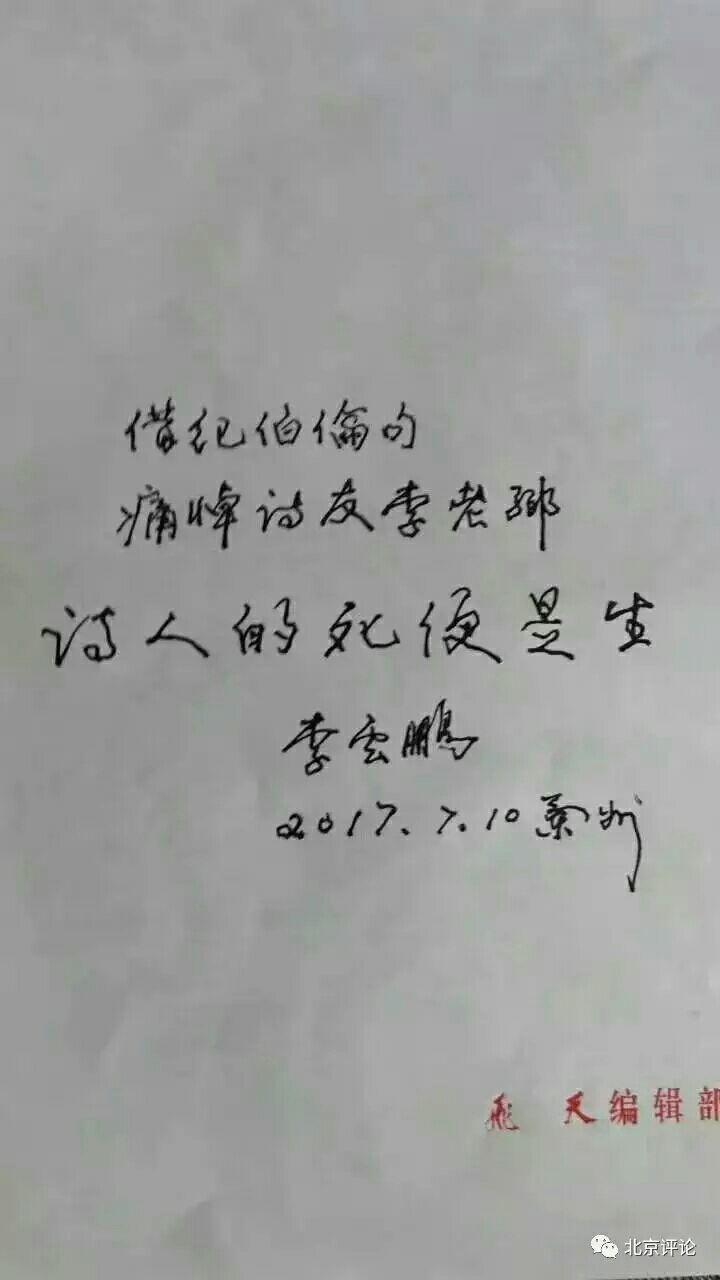 借纪伯倫句
痛悼诗友李老鄉
诗人的死便是生
李雲鵬
2017.7.10 蘭州
飛天编辑部
北京评论